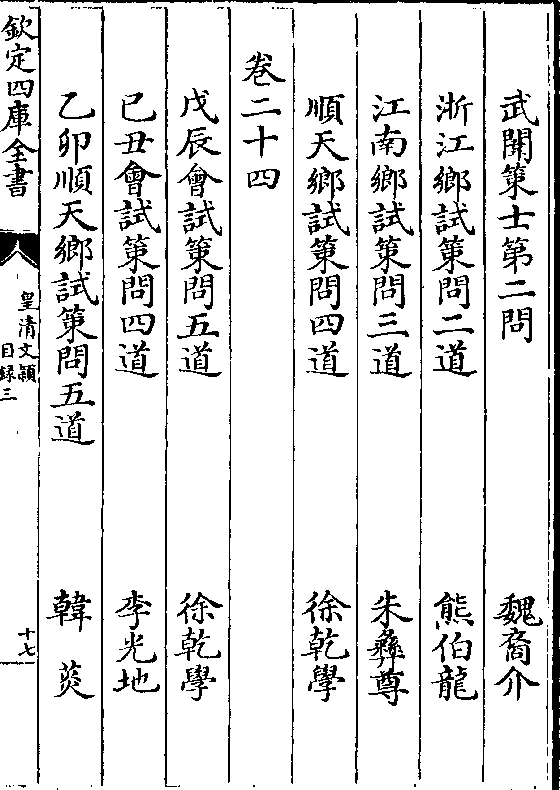 武闈策士第二問 魏裔介
浙江鄉試策問二道 熊伯龍
江南鄉試策問三道 朱彝尊
順天鄉試策問四道 徐乾學
卷二十四
戊辰會試策問五道 徐乾學
己丑會試策問四道 李光地
乙卯順天鄉試策問五道 韓菼
欽定四庫全書
皇清文穎
目録三
十七